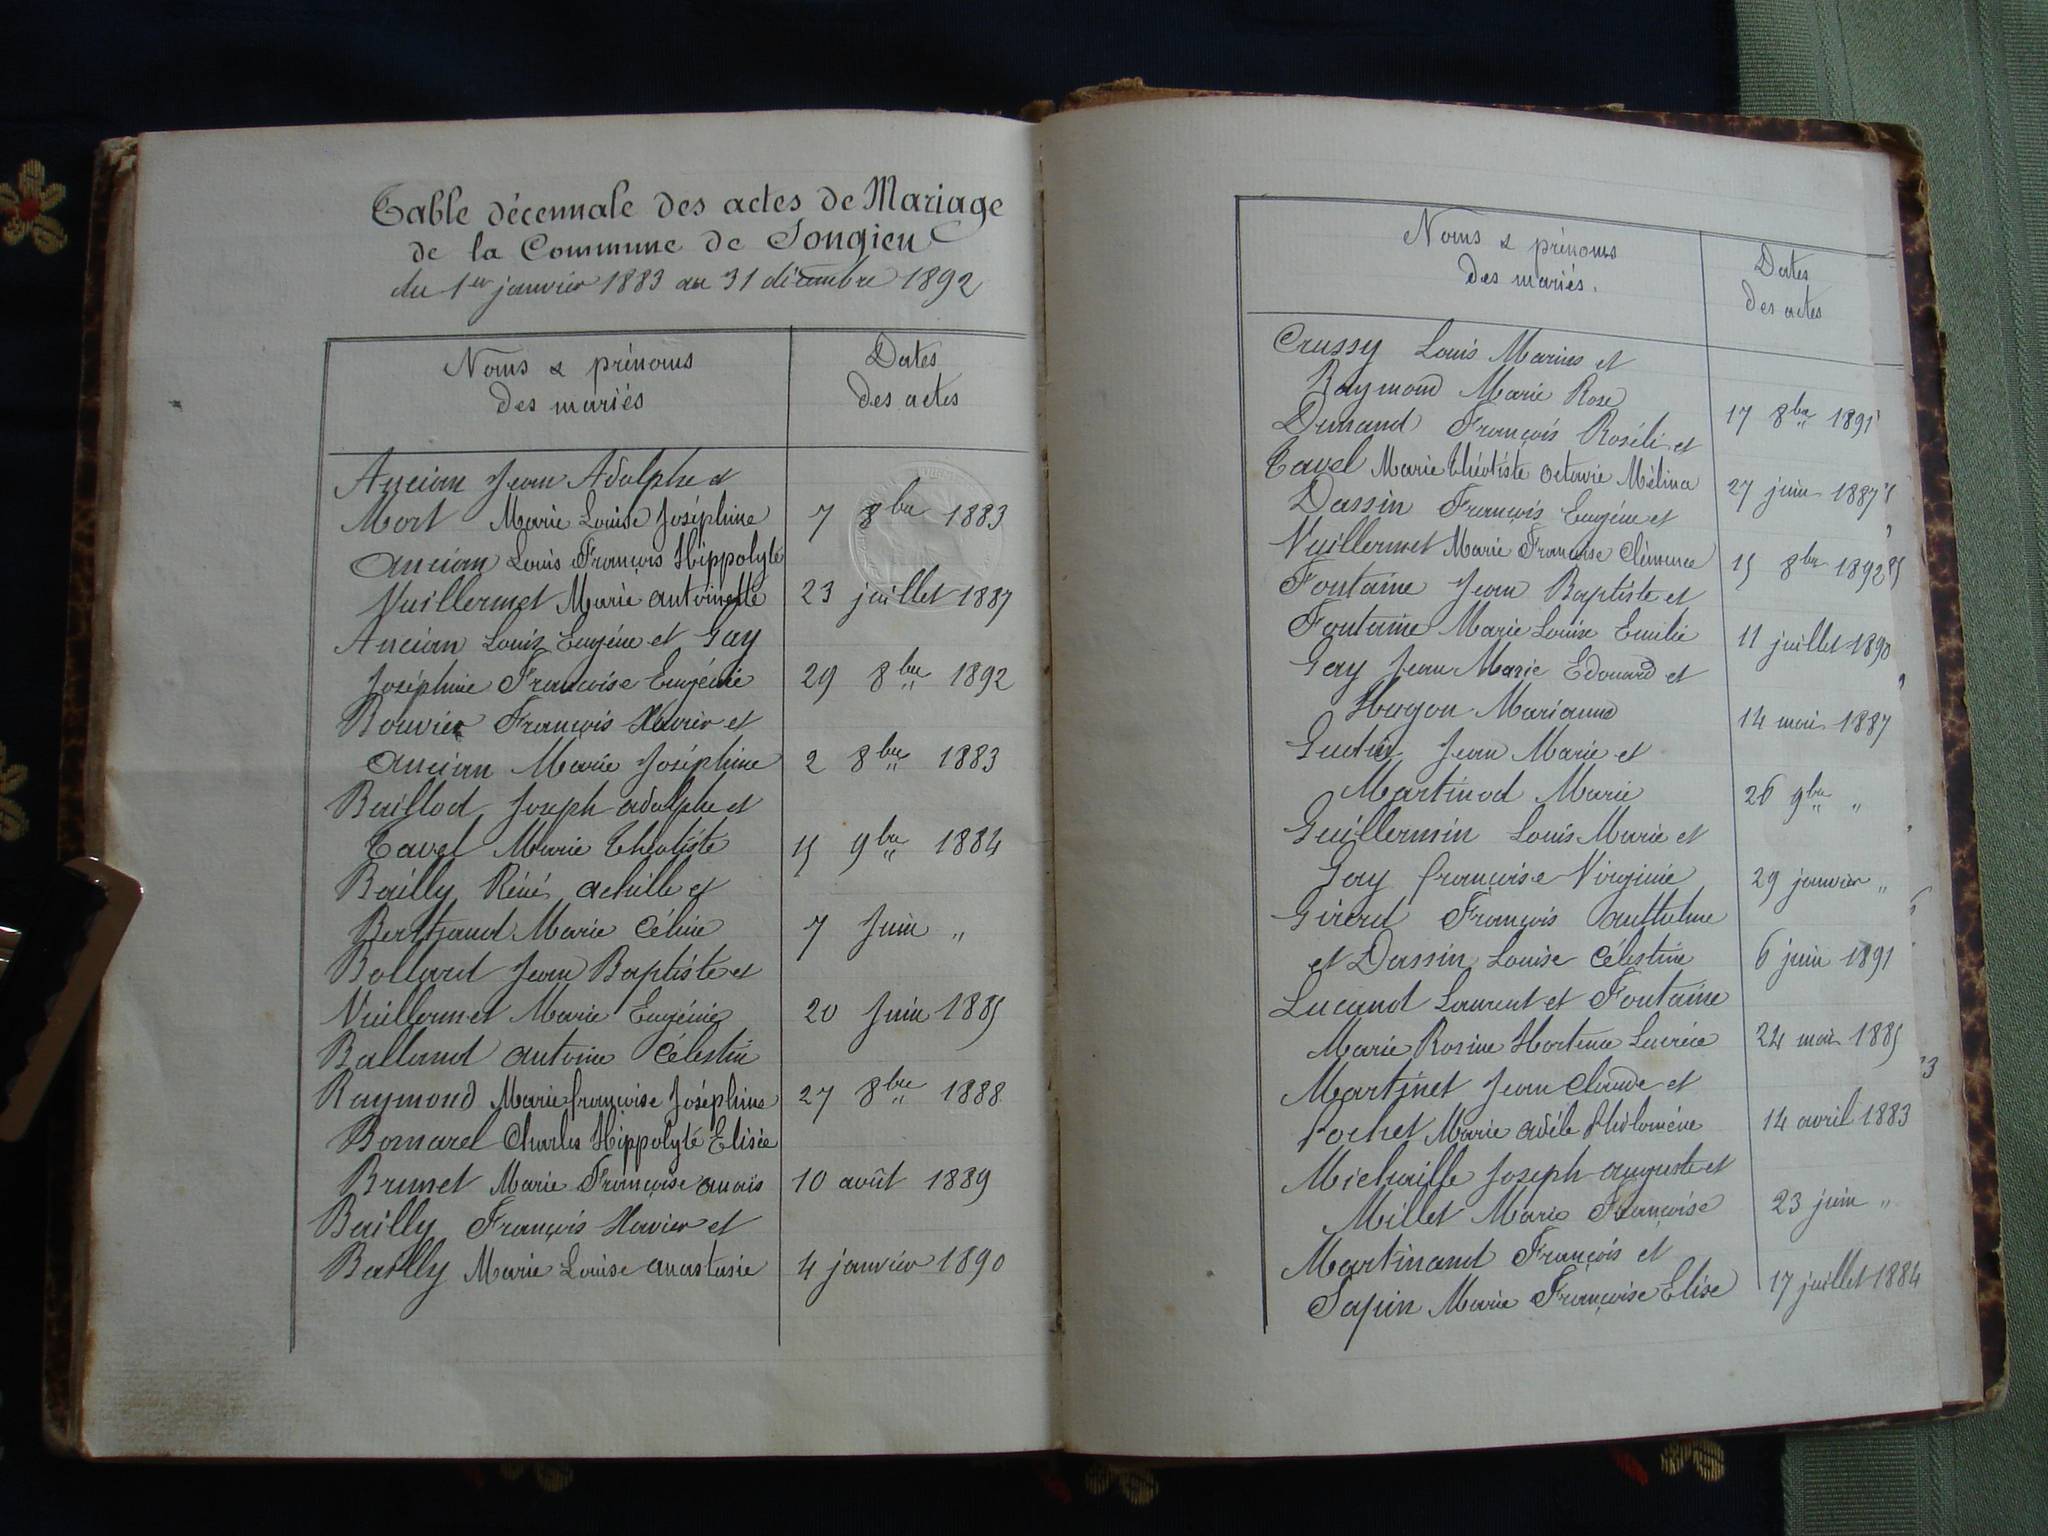 Table décennale des actes de Mariage
de la Commune de Songieu
du 1er janvier 1883 au 31 décembre 1892
Noms & prénoms
des mariés
Dates
des actes
Ancian Jean Adolphe et
Mort Marie Louise Joséphine 7 8bre 1883
Ancian Louis François Hippolyte
Vuillermet Marie Antoinette 23 juillet 1887
Ancian Louis Eugéne et Gay
Joséphine Françoise Eugénie 29 8bre 1892
Bouvier François Xavier et
Ancian Marie Joséphine 2 8bre 1883
Baillod Joseph Adolphe et
Tavel Marie Théotiste 15 9bre 1884
Bailly Réné Achille et
Berthand Marie Céline 7 Juin "
Bollard Jean Baptiste et
Vuillermet Marie Eugénie 20 Juin 1885
Balland Antoine Célestin
Raymond Marie françoise Joséphine 27 8bre 1888
Bomarel Charles Hippolyte Elisée
Brunet Marie Françoise Anaïs 10 août 1889
Bailly François Xavier et
Bailly Marie Louise Anastasie 4 janvier 1890
Noms & prénoms
des mariés.
Dates
des actes
Crussy Louis Marius et
Raymond Marie Rose 17 8bre 1891
Dunand François Roséli et
Tavel Marie Théotiste Octavie Mélina 27 juin 1887
Dassin François Eugéne et
Vuillermet Marie Françoise Clémence 15 8bre 1892
Fontaine Jean Baptiste et
Fontaine Marie Louise Emilie 11 juillet 1890
Gay Jean Marie Edouard et
Hugon Marianne 14 mai 1887
Gudin Jean Marie et
Martinod Marie 26 9bre "
Guillermin Louis Marie et
Gay françoise Virginie 29 janvier "
Girerd François Anthelme
et Dassin Louise Célestine 6 juin 1891
Lucand Laurent et Fontaine
Marie Rosine Hortense Lucréce 24 mai 1885
Martinet Jean Claude et
Pochet Marie Adéle Philoméne 14 avril 1883
Michaille Joseph Auguste et
Millet Marie Françoise 23 juin "
Martinand François et
Sapin Marie Françoise Elise 17 juillet 1884